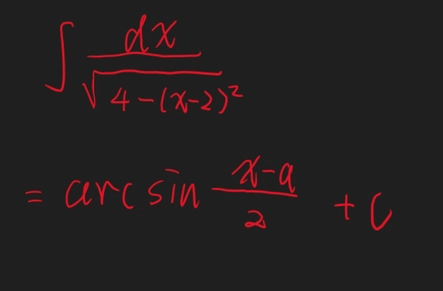 ∫ dx / √(4-(x-2)²)
= arcsin (x-a)/2 + C